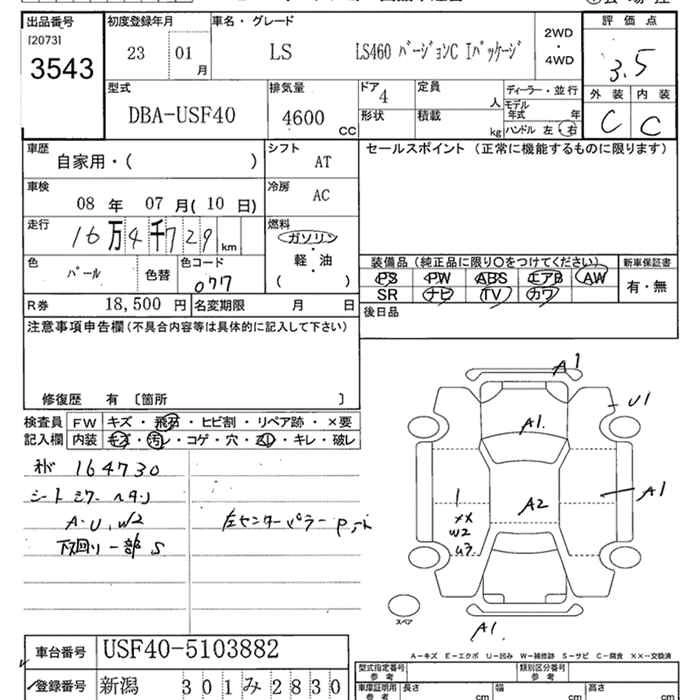 出品番号
[2073]
3543
初度登録年月
23 01 月
車名・グレード
LS LS460 バージョンC Iパッケージ
2WD
・
4WD
評価点
3.5
外装 内装
C C
型式
DBA-USF40
排気量
4600 cc
ドア
4
定員
人
形状
積載
kg
ディーラー・並行
モデル
年式 年
ハンドル 左・右
車歴
自家用・( )
シフト
AT
車検
08 年 07 月 ( 10 日)
冷房
AC
走行
16万4千729 km
燃料
ガソリン
軽・油
( )
色
パール
色替
色コード
077
R券 18,500 円
名変期限 月 日
セールスポイント (正常に機能するものに限ります)
装備品 (純正品に限り○をつけてください)
PS PW ABS エアB AW
SR ナビ TV カワ
新車保証書
有・無
後日品
注意事項申告欄 (不具合内容等は具体的に記入して下さい)
修復歴 有 〔箇所 〕
検査員
記入欄
FW キズ・飛石・ヒビ割・リペア跡・×要
内装 キズ・汚レ・コゲ・穴・スレ・キレ・破レ
164730
シート
A・U、W2
下回り一部S
左センターピラー
A1
U1
A1.
A1
A2
XX
W2
U3
A1.
スペア
A-キズ E-エクボ U-凹み W-補修跡 S-サビ C-腐食 ××-交換済
車台番号 USF40-5103882
登録番号 新潟 301み2830
型式指定番号
参考
類別区分番号
参考
車庫証明用
参考
長さ cm
幅 cm
高さ cm